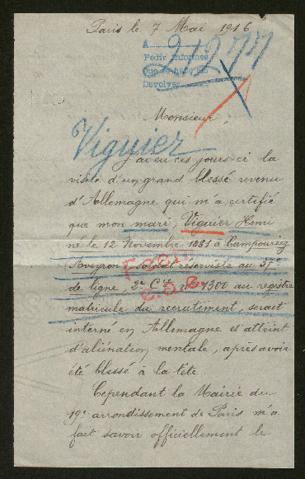 Paris le 7 Mai 1916
A
Pedir informes
Devolver
Monsieur,
Viguier
J'ai eu ces jours-ci la
visite d'un grand blessé revenu
d'Allemagne qui m'a certifié
que mon mari, Viguier Henri
né le 12 Novembre 1881 à
Aveyron soldat réserviste au
de ligne, 2e Cie 7308 au registre
matricule du recrutement, serait
interné en Allemagne et atteint
d'aliénation mentale, après avoir
été blessé à la tête
Cependant la Mairie du
19e arrondissement de Paris m'a
fait savoir officiellement le